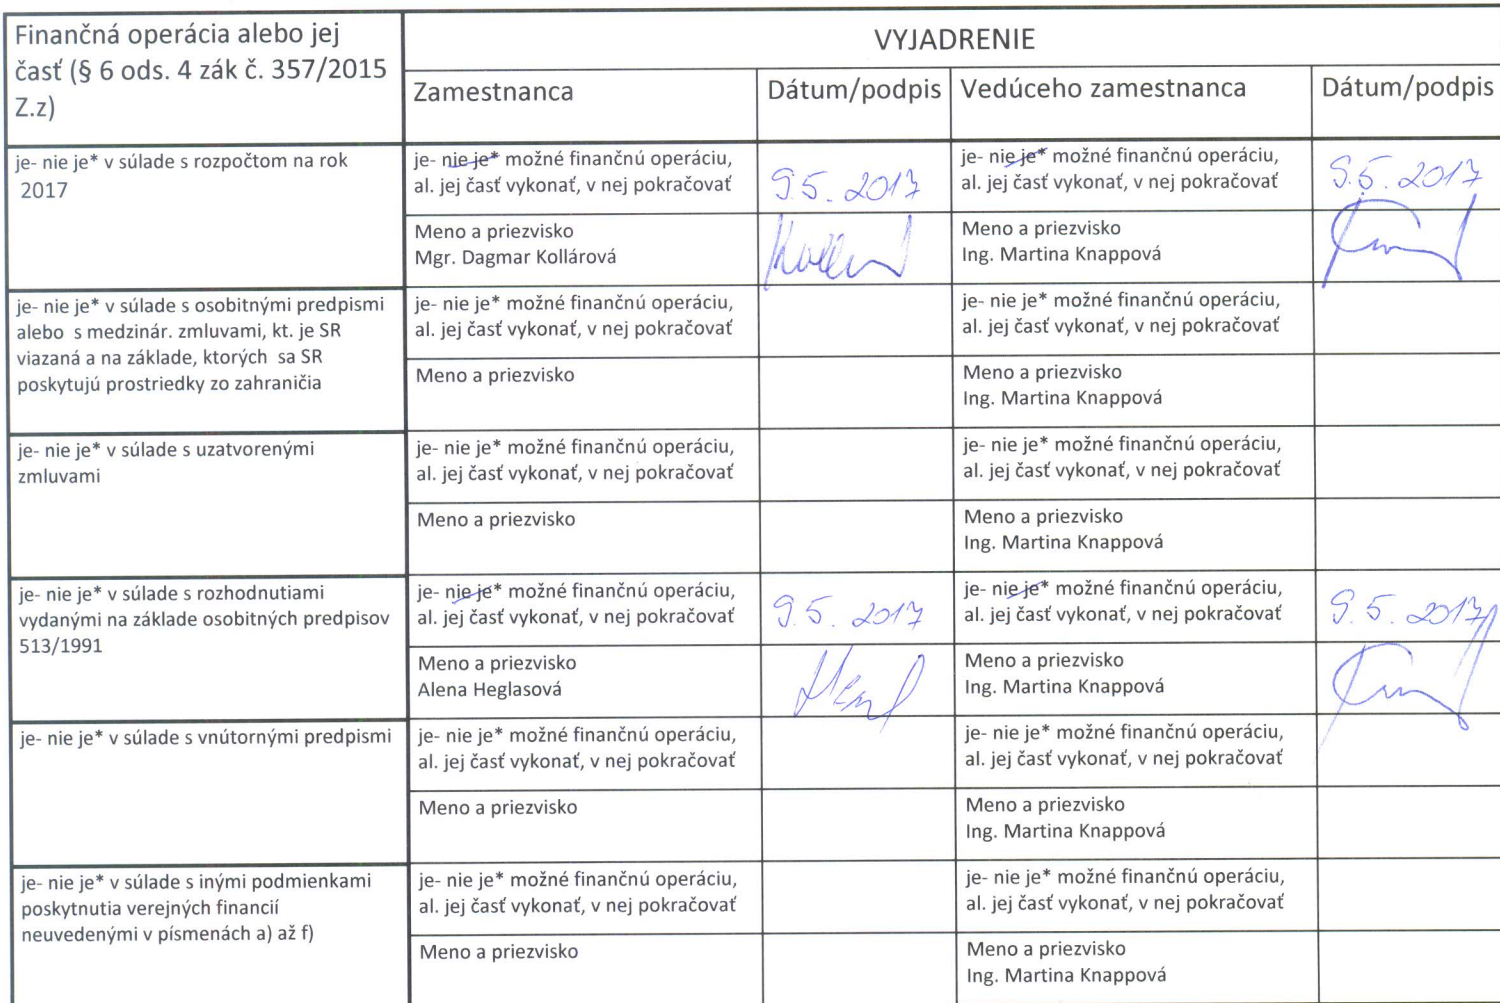 Finančná operácia alebo jej
časť (§ 6 ods. 4 zák č. 357/2015
Z.z)
VYJADRENIE
Zamestnanca
Dátum/podpis
Vedúceho zamestnanca
Dátum/podpis
je- nie je* v súlade s rozpočtom na rok
2017
je- nie je* možné finančnú operáciu,
al. jej časť vykonať, v nej pokračovať
9.5. 2017
je- nie je* možné finančnú operáciu,
al. jej časť vykonať, v nej pokračovať
9.5. 2017
Meno a priezvisko
Mgr. Dagmar Kollárová
Meno a priezvisko
Ing. Martina Knappová
je- nie je* v súlade s osobitnými predpismi
alebo s medzinár. zmluvami, kt. je SR
viazaná a na základe, ktorých sa SR
poskytujú prostriedky zo zahraničia
je- nie je* možné finančnú operáciu,
al. jej časť vykonať, v nej pokračovať
je- nie je* možné finančnú operáciu,
al. jej časť vykonať, v nej pokračovať
Meno a priezvisko
Meno a priezvisko
Ing. Martina Knappová
je- nie je* v súlade s uzatvorenými
zmluvami
je- nie je* možné finančnú operáciu,
al. jej časť vykonať, v nej pokračovať
je- nie je* možné finančnú operáciu,
al. jej časť vykonať, v nej pokračovať
Meno a priezvisko
Meno a priezvisko
Ing. Martina Knappová
je- nie je* v súlade s rozhodnutiami
vydanými na základe osobitných predpisov
513/1991
je- nie je* možné finančnú operáciu,
al. jej časť vykonať, v nej pokračovať
9.5. 2017
je- nie je* možné finančnú operáciu,
al. jej časť vykonať, v nej pokračovať
9.5. 2017
Meno a priezvisko
Alena Heglasová
Meno a priezvisko
Ing. Martina Knappová
je- nie je* v súlade s vnútornými predpismi
je- nie je* možné finančnú operáciu,
al. jej časť vykonať, v nej pokračovať
je- nie je* možné finančnú operáciu,
al. jej časť vykonať, v nej pokračovať
Meno a priezvisko
Meno a priezvisko
Ing. Martina Knappová
je- nie je* v súlade s inými podmienkami
poskytnutia verejných financií
neuvedenými v písmenách a) až f)
je- nie je* možné finančnú operáciu,
al. jej časť vykonať, v nej pokračovať
je- nie je* možné finančnú operáciu,
al. jej časť vykonať, v nej pokračovať
Meno a priezvisko
Meno a priezvisko
Ing. Martina Knappová